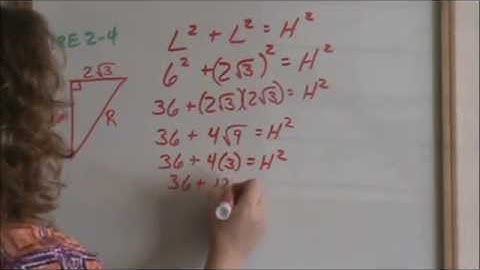 RE 2-4
2√3
R
L² + L² = H²
6² + (2√3)² = H²
36 + (2√3)(2√3) = H²
36 + 4√9 = H²
36 + 4(3) = H²
36 + 12